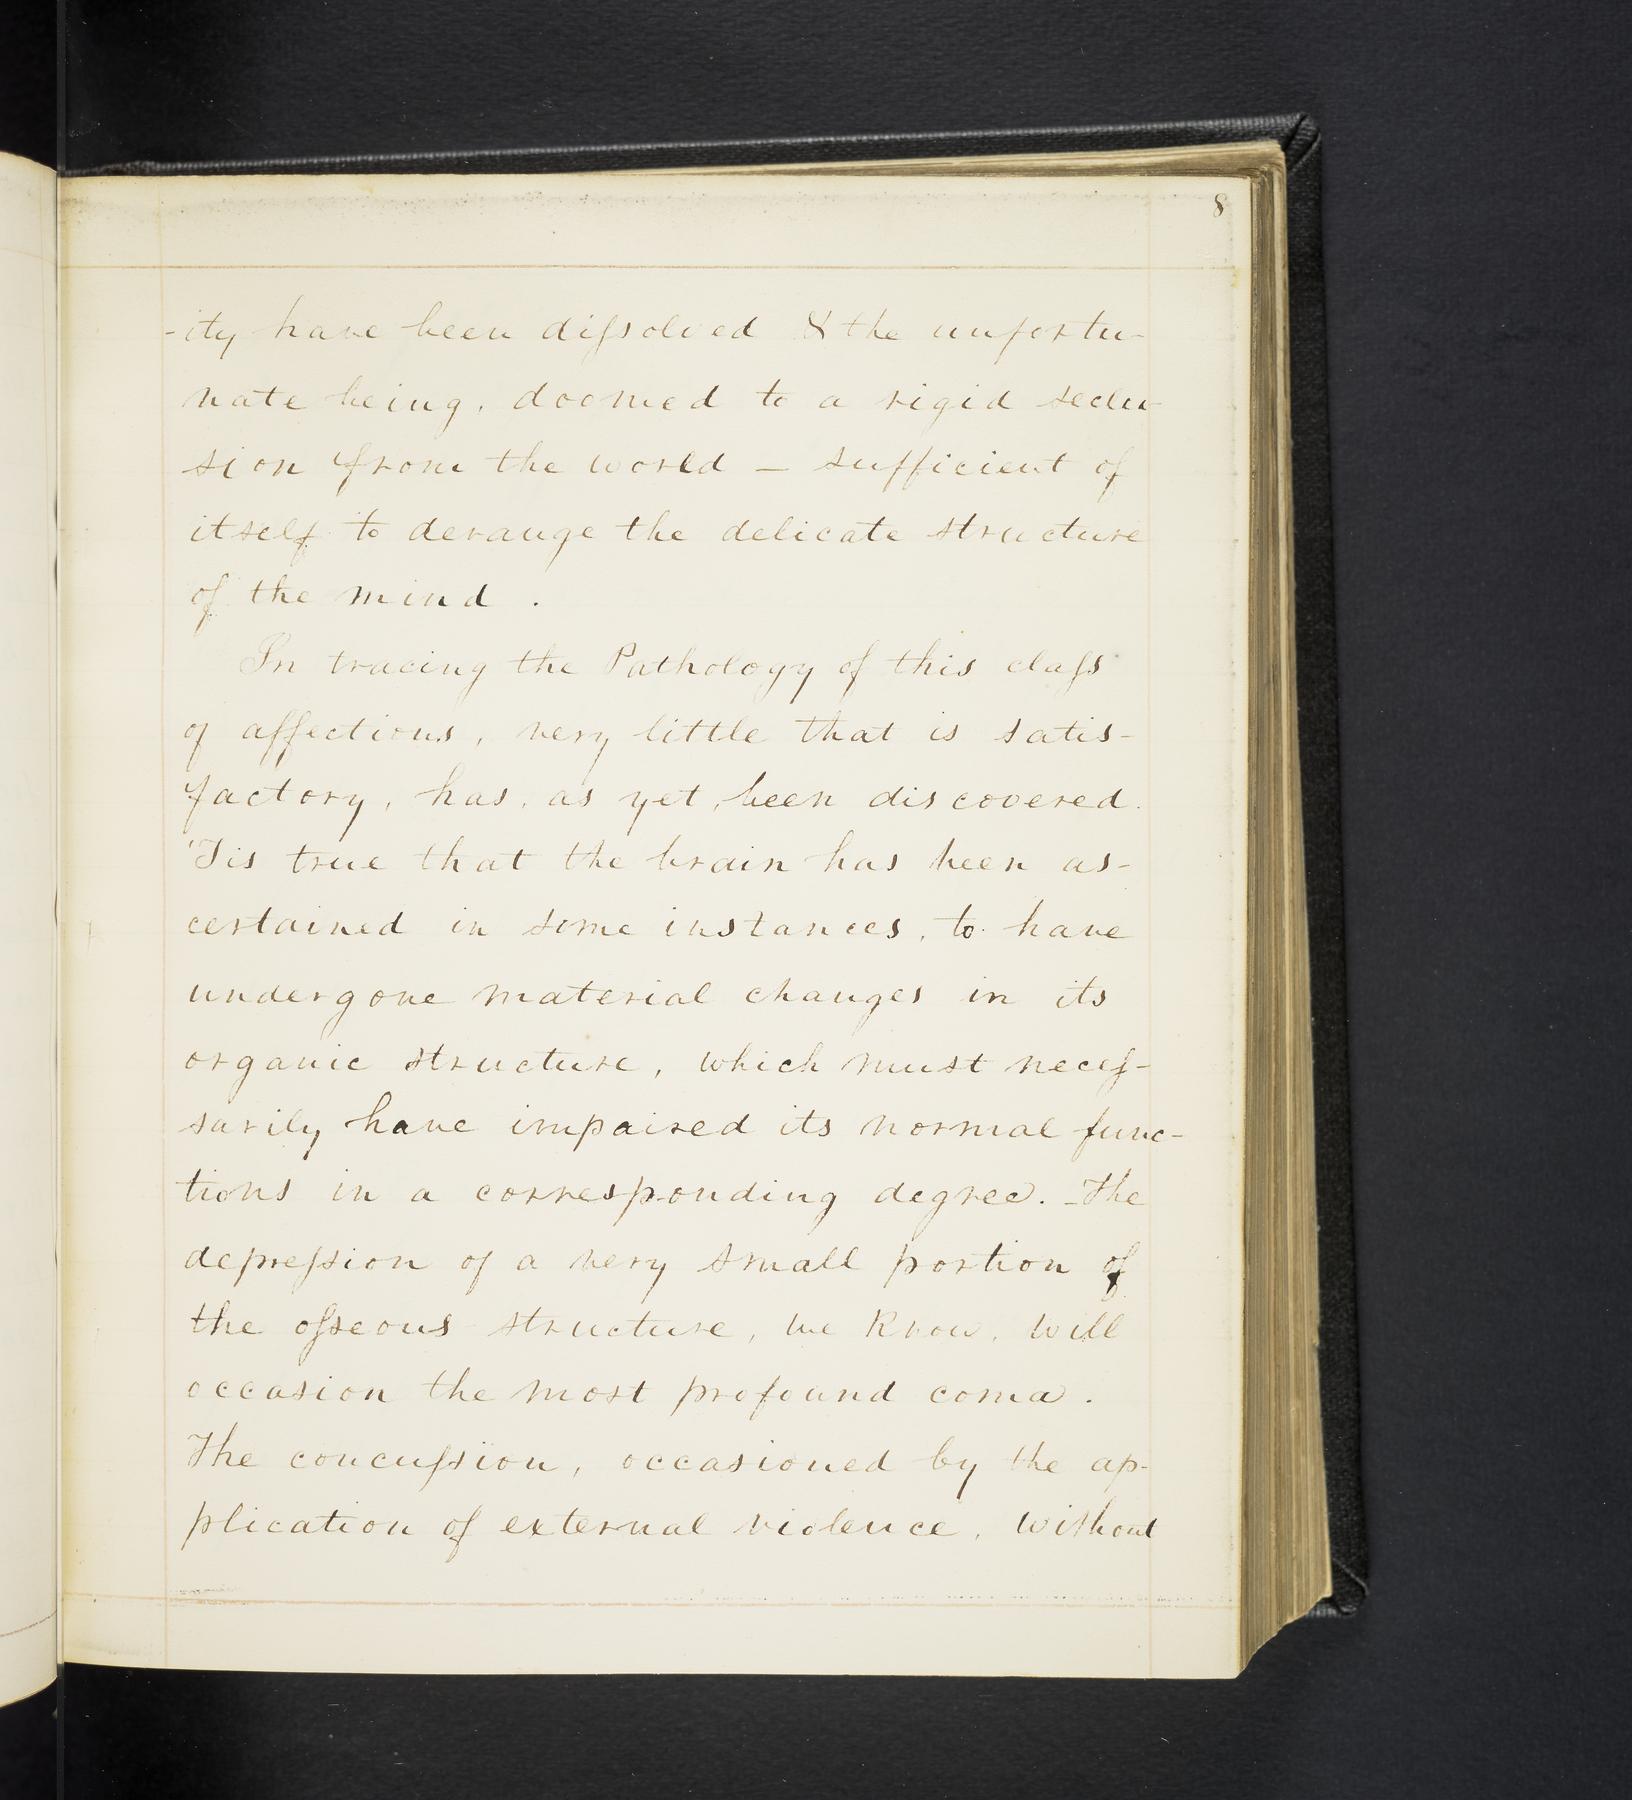 8
-ity have been diſsolved & the unfortu-
nate being, doomed to a rigid seclu-
sion from the world — sufficient of
itself to derange the delicate structure
of the mind .
In tracing the Pathology of this claſs
of affections, very little that is satis-
factory, has, as yet, been discovered.
'Tis true that the brain has been as-
certained in some instances, to have
undergone material changes in its
organic structure, which must neceſ-
sarily have impaired its normal func-
tions in a corresponding degree. The
depreſsion of a very small portion of
the oſseous structure, we know, will
occasion the most profound coma .
The concuſsion, occasioned by the ap-
plication of external violence, without